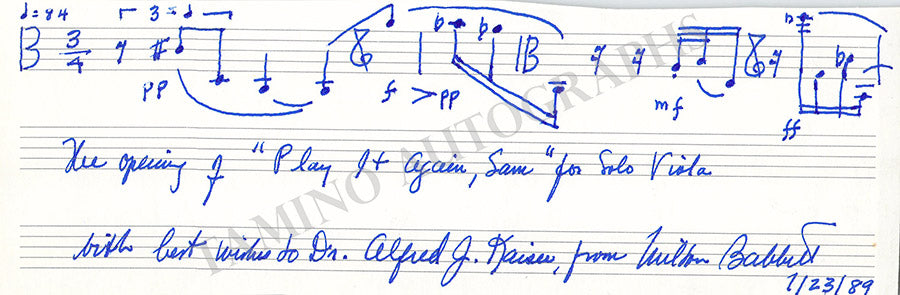 ♩=84 ⌈ 3=♩ ⌉
3/4
pp f > pp mf ff
The opening of "Play It Again, Sam" for Solo Viola
With best wishes to Dr. Alfred J. Kaiser, from Milton Babbitt
1/23/89
TAMINO AUTOGRAPHS